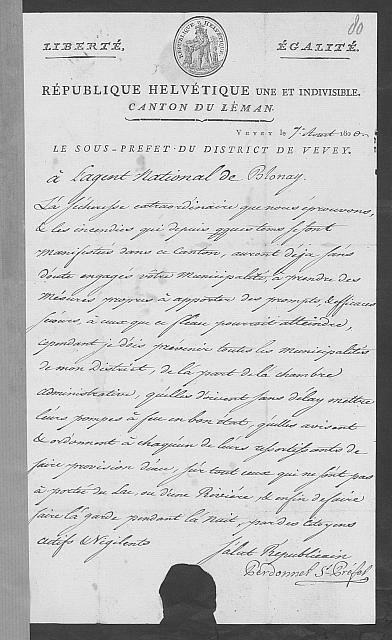 80
RÉPUBLIQUE HELVÉTIQUE
LIBERTÉ, ÉGALITÉ.
RÉPUBLIQUE HELVÉTIQUE UNE ET INDIVISIBLE.
CANTON DU LÉMAN.
VEVEY le 7e Aout 1800
LE SOUS-PREFET DU DISTRICT DE VEVEY.
à L'agent National de Blonay.
La sécheresse extraordinaire que nous éprouvons,
& les incendies qui depuis qques tems se sont
manifestés dans ce Canton, auront déja sans
doute engagés votre Municipalité, à prendre des
mesures propres à apporter des prompts & efficaces
secours, à ceux que ce fleau pourrait atteindre,
cependant je dois prévenir toutes les municipalités
de mon district, de la part de la chambre
administrative, qu'elles doivent sans délay mettre
leurs pompes à feu en bon état, qu'elles avisent
& ordonnent à chaqu'un de leurs ressortissants de
faire provision d'eau, sur tout ceux qui ne sont pas
à portée du Lac, ou d'une Rivière, & enfin de faire
faire la garde pendant la nuit, par des citoyens
actifs & Vigilents
Salut Républicain
Perdonnet St Préfet